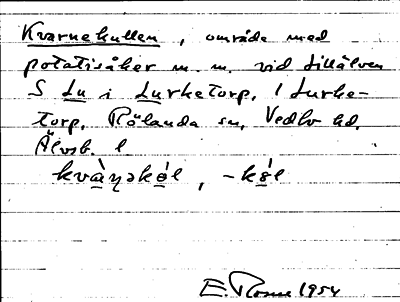 Kvarnekullen, område med
potatisåker m. m. vid Lillälven
S Lu i Lurketorp. 1 Lurke-
torp, Rölanda sn, Vedbo hd.
Älvsb. l
kvà̱ṇəkó̱l, -kó̱l
E. 1954